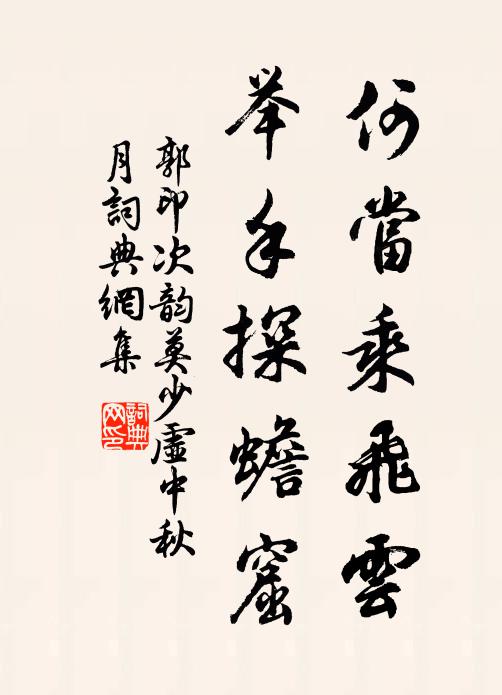 何當乘飛雲
举手探蟾窟
郭印次韵莫少虛中秋
月詞典網集
詞典
网印